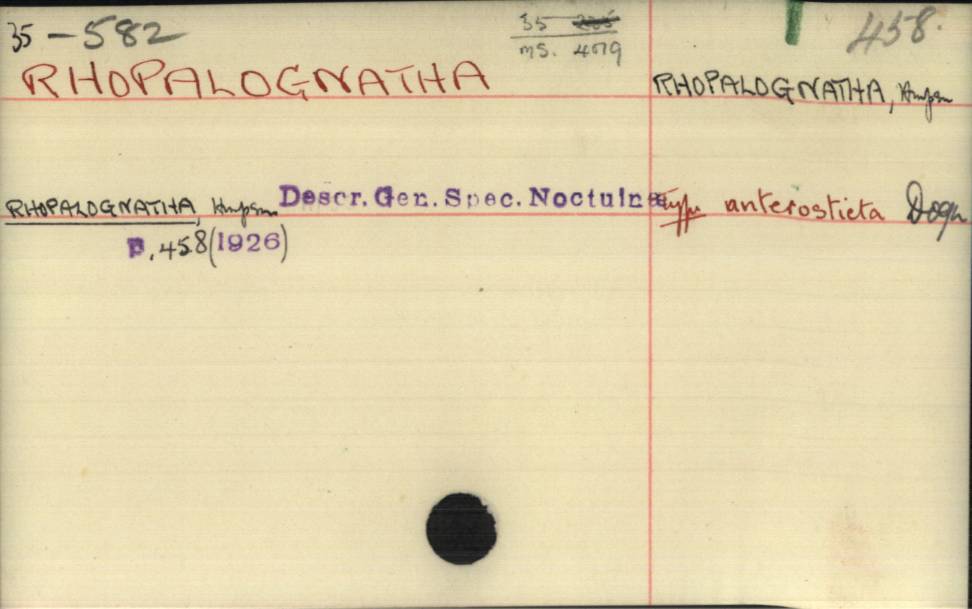 35 - 582
35
ms. 4079
458.
RHOPALOGNATHA
RHOPALOGNATHA, Hmpsn
RHOPALOGNATHA, Hmpsn Descr. Gen. Spec. Noctuinae
type anterosticta Dogn
p. 458 (1926)